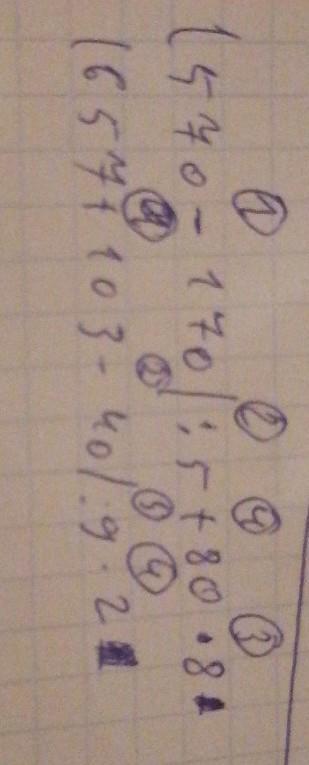 ① ② ④ ③
(570 - 170) : 5 + 80 · 8
① ② ③ ④
(657 + 103 - 40) : 9 · 2